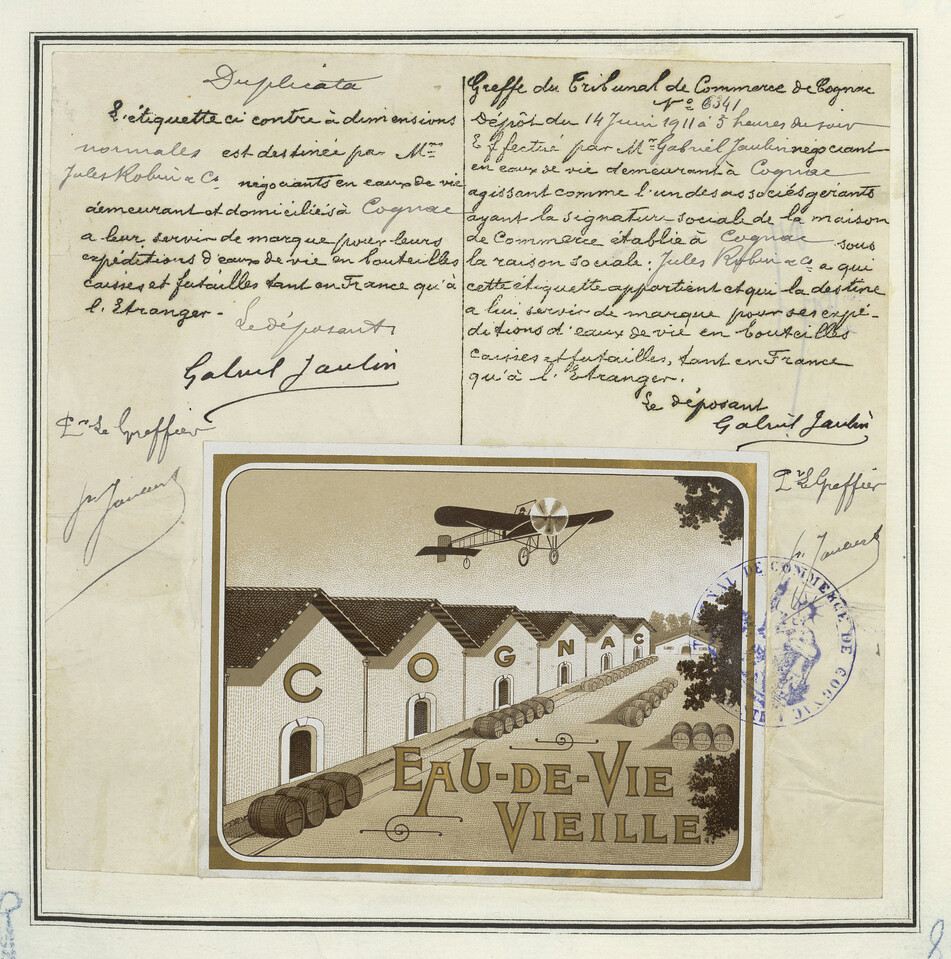 Duplicata
L'étiquette ci contre à dimensions
normales est destinée par Mrs
Jules Robin & Co négociants en eaux de vie
demeurant et domiciliés à Cognac
a leur servir de marque pour leurs
expéditions d'eaux de vie en bouteilles
caisses et futailles tant en France qu'à
l'Etranger.
Le déposant
Gabriel Jaulin
Pr Le Greffier
Greffe du Tribunal de Commerce de Cognac
No 6341
Dépôt du 14 Juin 1911 à 5 heures du soir
Effectué par Mr Gabriel Jaulin negociant
en eaux de vie demeurant à Cognac
agissant comme l'un des associés gérants
ayant la signature sociale de la maison
de Commerce établie à Cognac sous
la raison sociale. Jules Robin & Co a qui
cette étiquette appartient et qui la destine
a lui servir de marque pour ses expé-
ditions d'eaux de vie en bouteilles
caisses et futailles, tant en France
qu'à l'Etranger.
Le déposant
Gabriel Jaulin
Pr Le Greffier
COGNAC
EAU-DE-VIE
VIEILLE
TRIBUNAL DE COMMERCE DE COGNAC